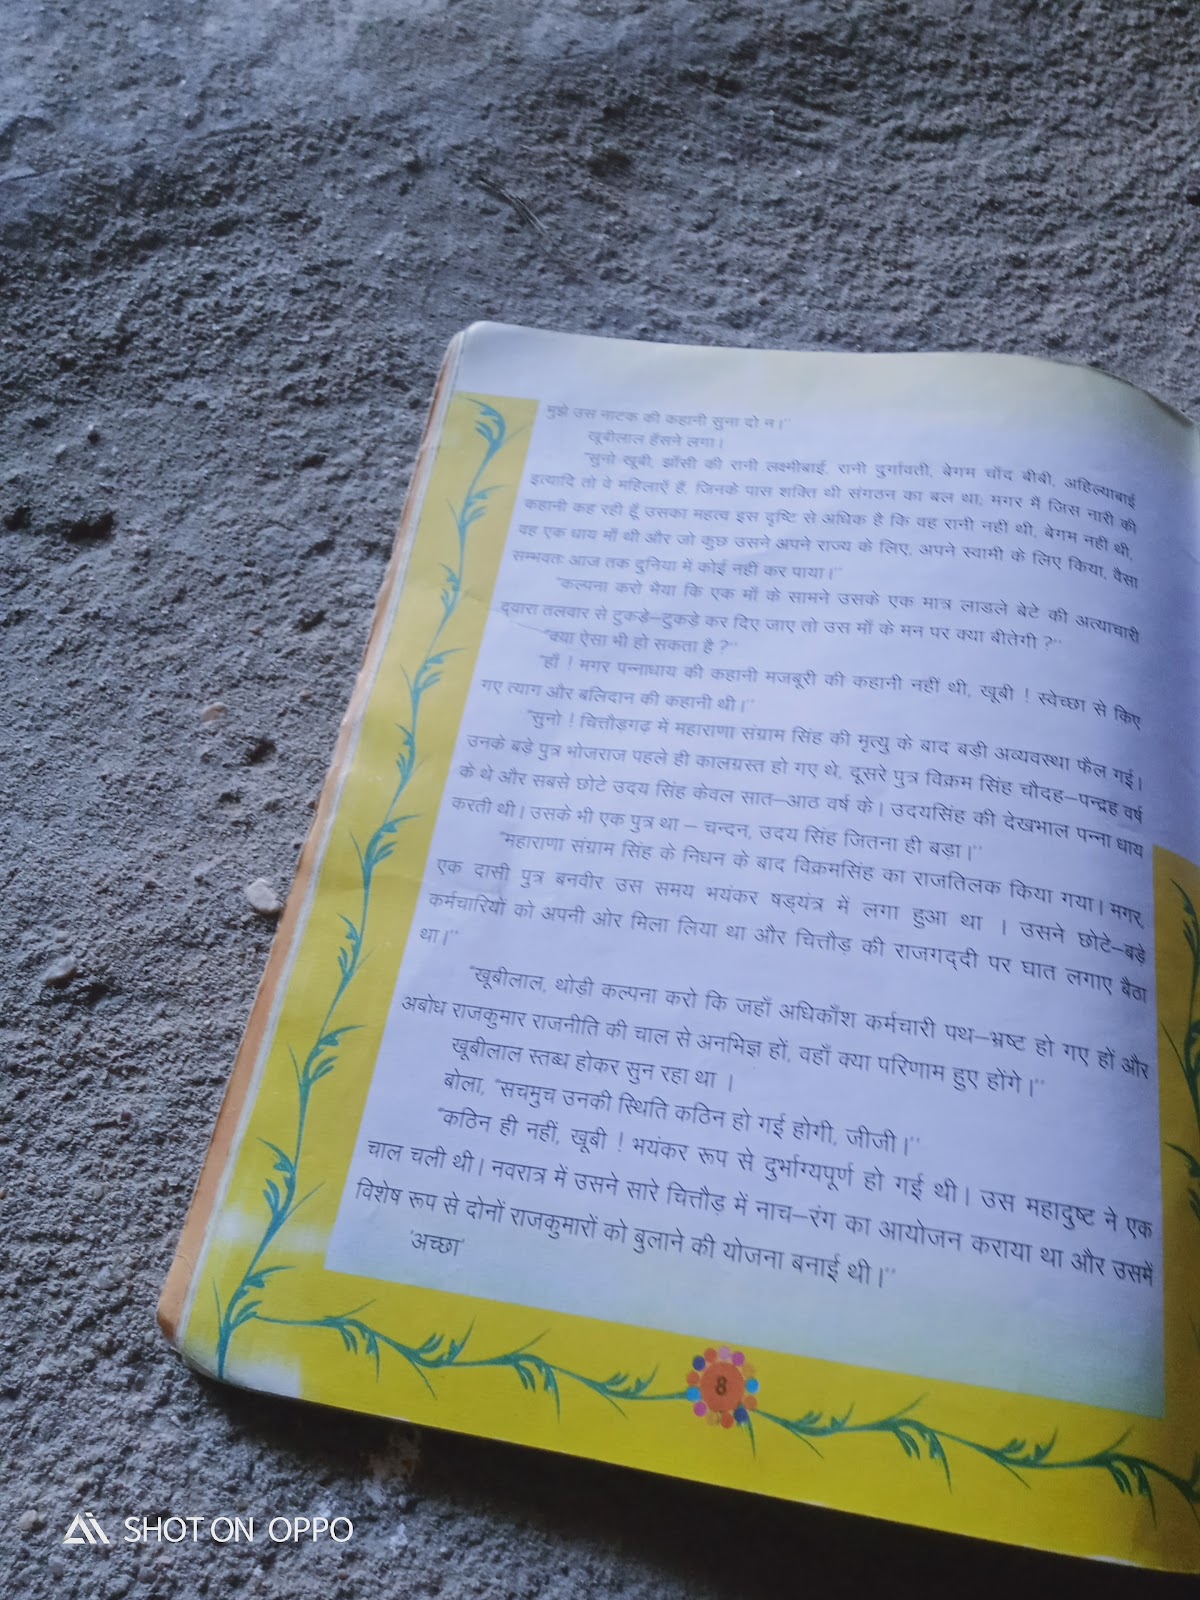 मुझे उस नाटक की कहानी सुना दो न।''
खूबीलाल हँसने लगा।
''सुनो खूबी, झाँसी की रानी लक्ष्मीबाई, रानी दुर्गावती, बेगम चाँद बीबी, अहिल्याबाई
इत्यादि तो वे महिलाएँ हैं, जिनके पास शक्ति थी संगठन का बल था; मगर मैं जिस नारी की
कहानी कह रही हूँ उसका महत्व इस दृष्टि से अधिक है कि वह रानी नहीं थी, बेगम नहीं थी,
वह एक धाय माँ थी और जो कुछ उसने अपने राज्य के लिए, अपने स्वामी के लिए किया, वैसा
सम्भवतः आज तक दुनिया में कोई नहीं कर पाया।''
''कल्पना करो भैया कि एक माँ के सामने उसके एक मात्र लाडले बेटे की अत्याचारी
द्वारा तलवार से टुकड़े–टुकड़े कर दिए जाए तो उस माँ के मन पर क्या बीतेगी ?''
''क्या ऐसा भी हो सकता है ?''
''हाँ ! मगर पन्नाधाय की कहानी मजबूरी की कहानी नहीं थी, खूबी ! स्वेच्छा से किए
गए त्याग और बलिदान की कहानी थी।''
''सुनो ! चित्तौड़गढ़ में महाराणा संग्राम सिंह की मृत्यु के बाद बड़ी अव्यवस्था फैल गई।
उनके बड़े पुत्र भोजराज पहले ही कालग्रस्त हो गए थे, दूसरे पुत्र विक्रम सिंह चौदह–पन्द्रह वर्ष
के थे और सबसे छोटे उदय सिंह केवल सात–आठ वर्ष के। उदयसिंह की देखभाल पन्ना धाय
करती थी। उसके भी एक पुत्र था – चन्दन, उदय सिंह जितना ही बड़ा।''
''महाराणा संग्राम सिंह के निधन के बाद विक्रमसिंह का राजतिलक किया गया। मगर,
एक दासी पुत्र बनवीर उस समय भयंकर षड्यंत्र में लगा हुआ था । उसने छोटे–बड़े
कर्मचारियों को अपनी ओर मिला लिया था और चित्तौड़ की राजगद्दी पर घात लगाए बैठा
था।''
''खूबीलाल, थोड़ी कल्पना करो कि जहाँ अधिकाँश कर्मचारी पथ–भ्रष्ट हो गए हों और
अबोध राजकुमार राजनीति की चाल से अनभिज्ञ हों, वहाँ क्या परिणाम हुए होंगे।''
खूबीलाल स्तब्ध होकर सुन रहा था ।
बोला, ''सचमुच उनकी स्थिति कठिन हो गई होगी, जीजी।''
''कठिन ही नहीं, खूबी ! भयंकर रूप से दुर्भाग्यपूर्ण हो गई थी। उस महादुष्ट ने एक
चाल चली थी। नवरात्र में उसने सारे चित्तौड़ में नाच–रंग का आयोजन कराया था और उसमें
विशेष रूप से दोनों राजकुमारों को बुलाने की योजना बनाई थी।''
'अच्छा'
8
SHOT ON OPPO